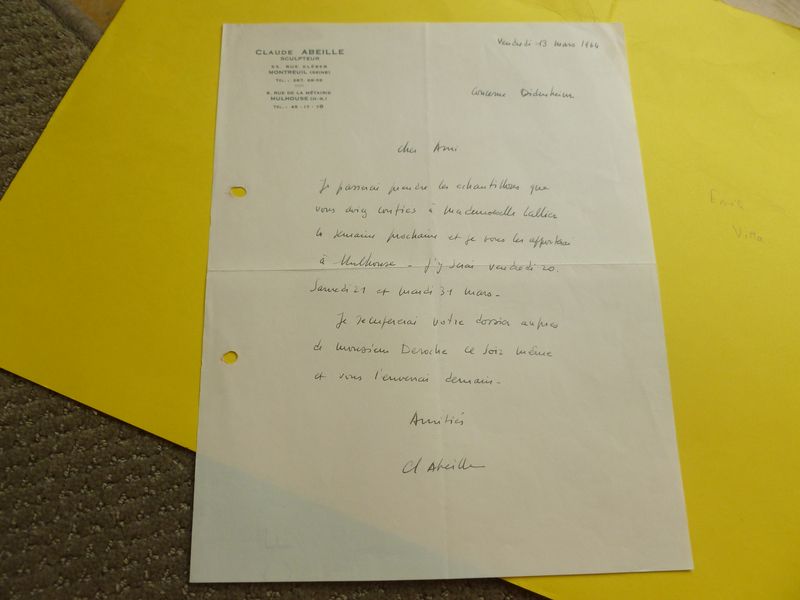 CLAUDE ABEILLE
SCULPTEUR
53, RUE KLÉBER
MONTREUIL (SEINE)
TÉL.: 287.
8, RUE DE LA MÉTAIRIE
MULHOUSE (H-R.)
TÉL.: 45-17-
Vendredi 13 mars 1964
Concerne Didenheim
Cher Ami
Je passerai prendre les échantillons que
vous aviez confiés à Mademoiselle
la semaine prochaine et je vous les apporterai
à Mulhouse - J'y serai vendredi 20.
Samedi 21 et mardi 31 mars -
Je récupérerai votre dossier auprès
de monsieur Deroche ce soir même
et vous l'enverrai demain -
Amitiés
Cl Abeille